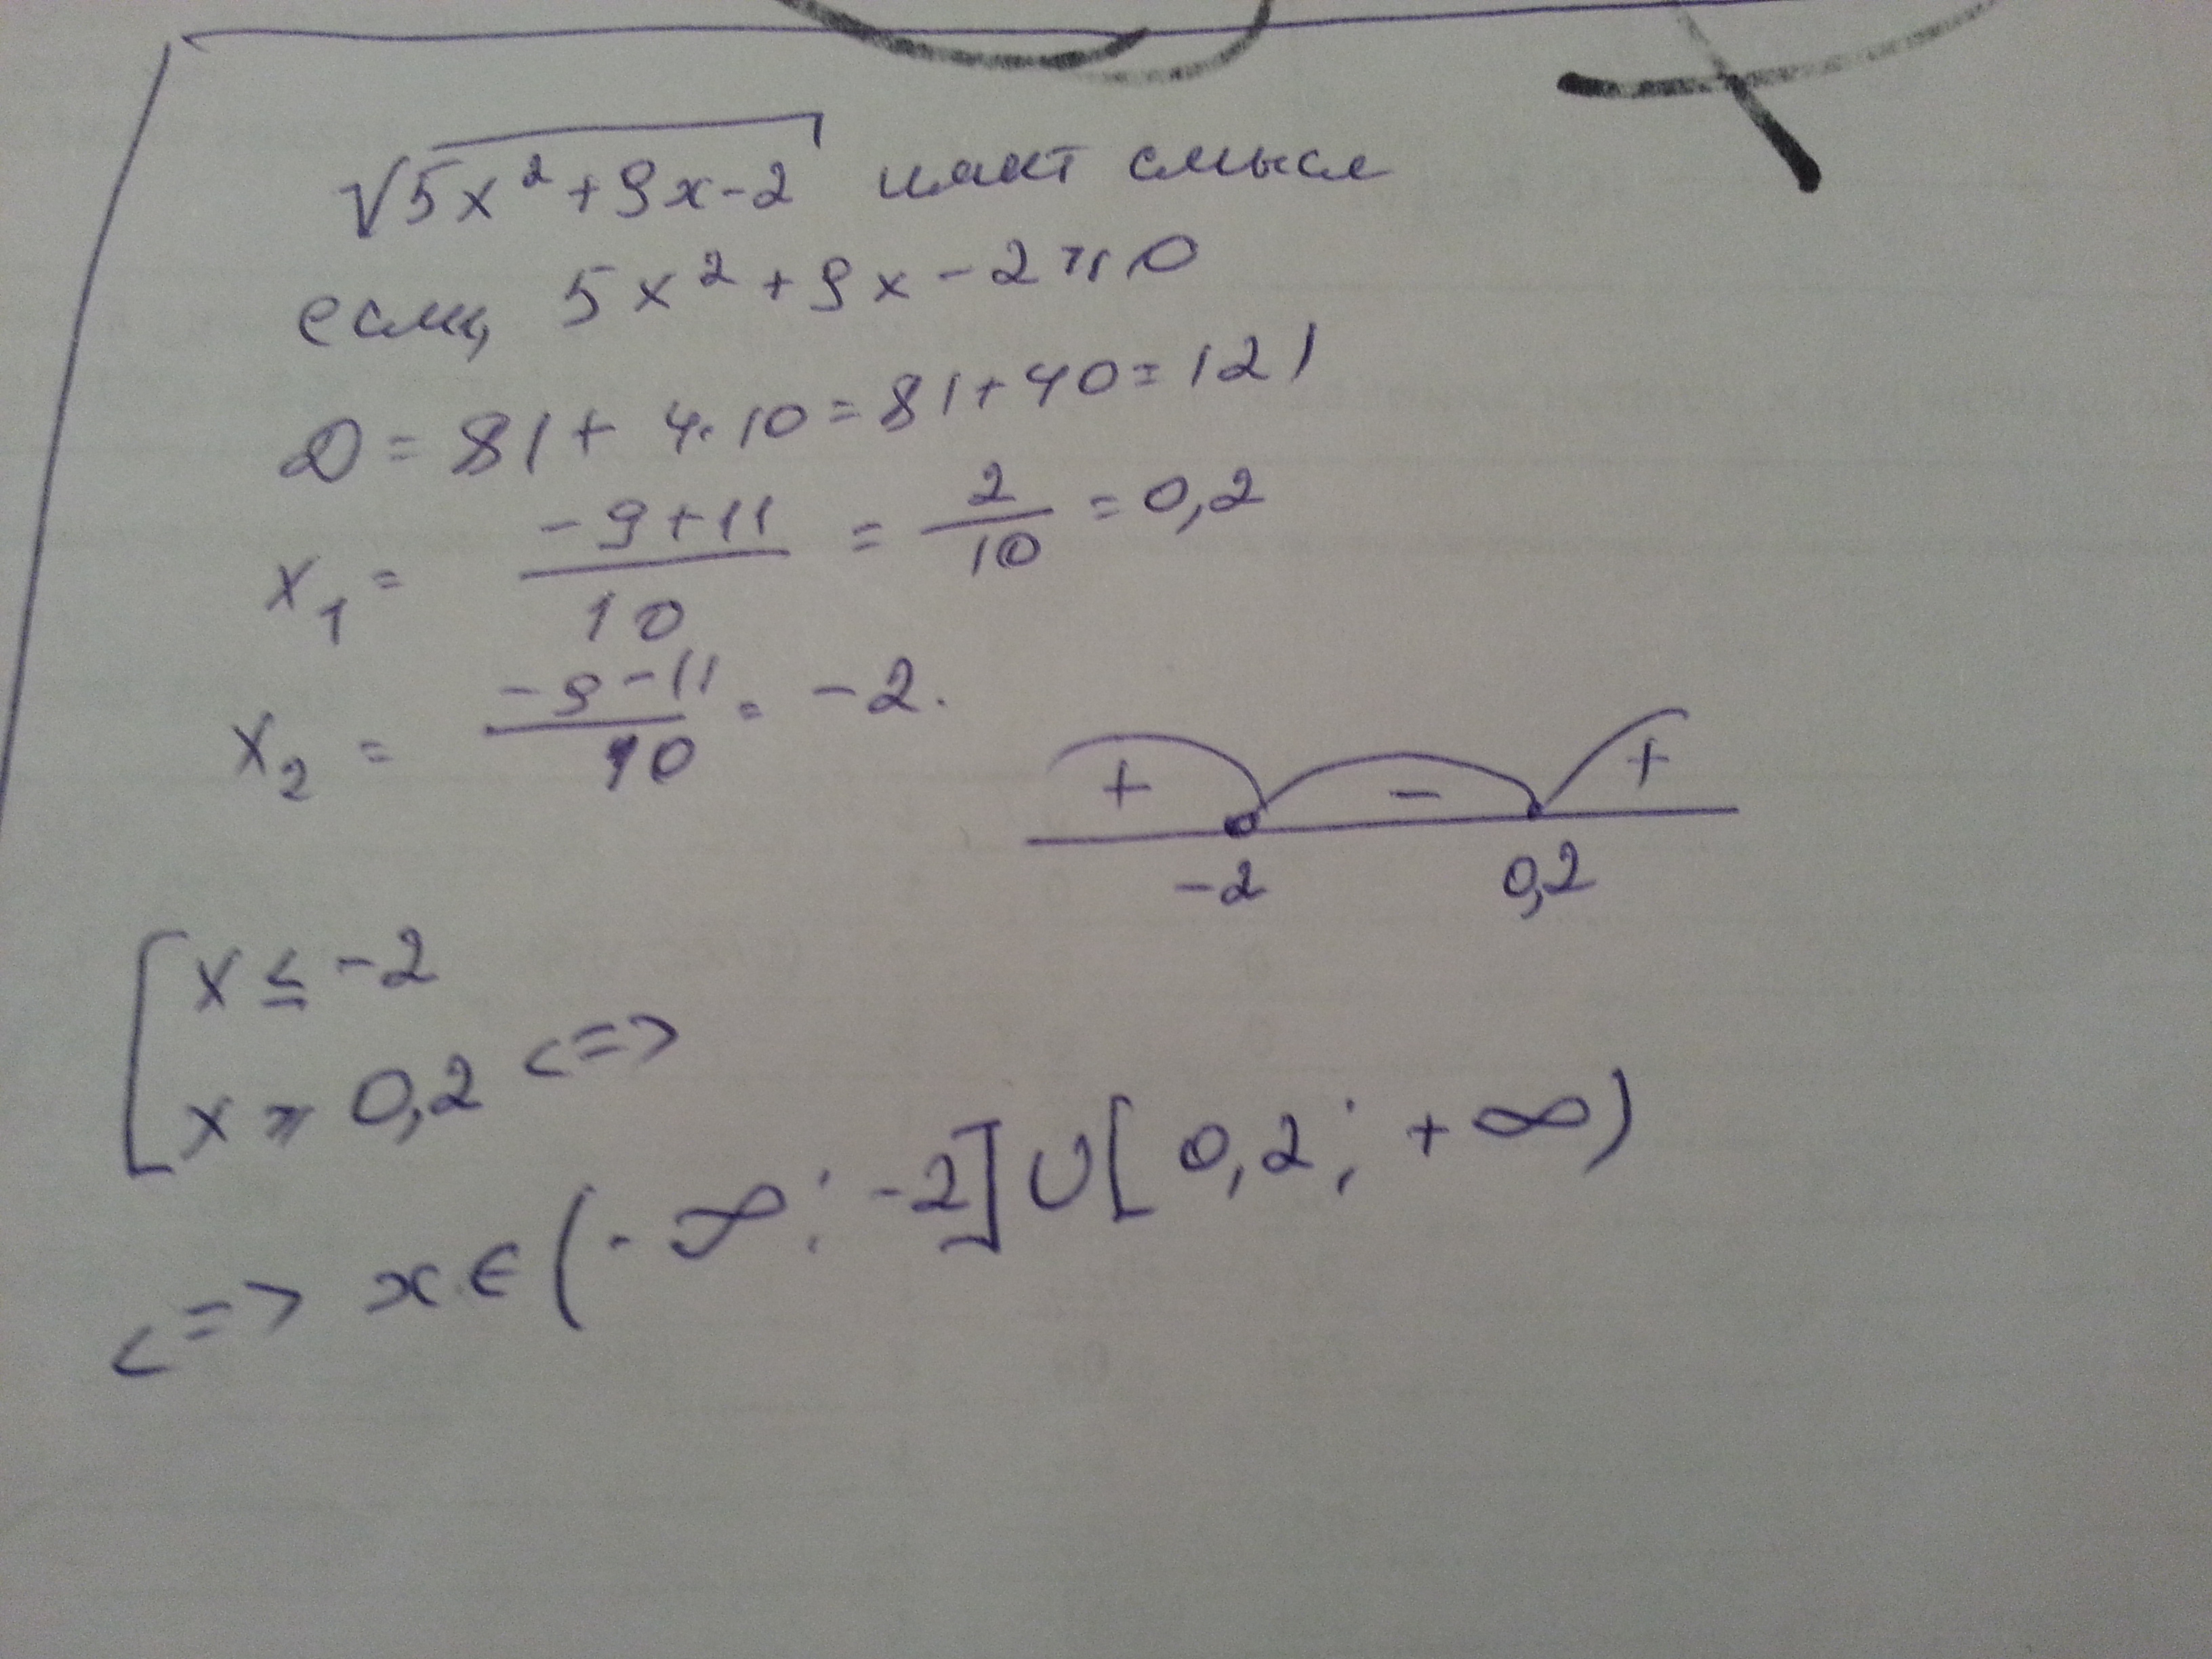 √5x² + 9x - 2 имеет смысл
если, 5x² + 9x - 2 ≥ 0
D = 81 + 4·10 = 81 + 40 = 121
x₁ = (-9 + 11)/10 = 2/10 = 0,2
x₂ = (-9 - 11)/10 = -2.
+ - +
-2 0,2
[ x ≤ -2
x ≥ 0,2 <=>
<=> x ∈ (-∞; -2] ∪ [0,2; +∞)